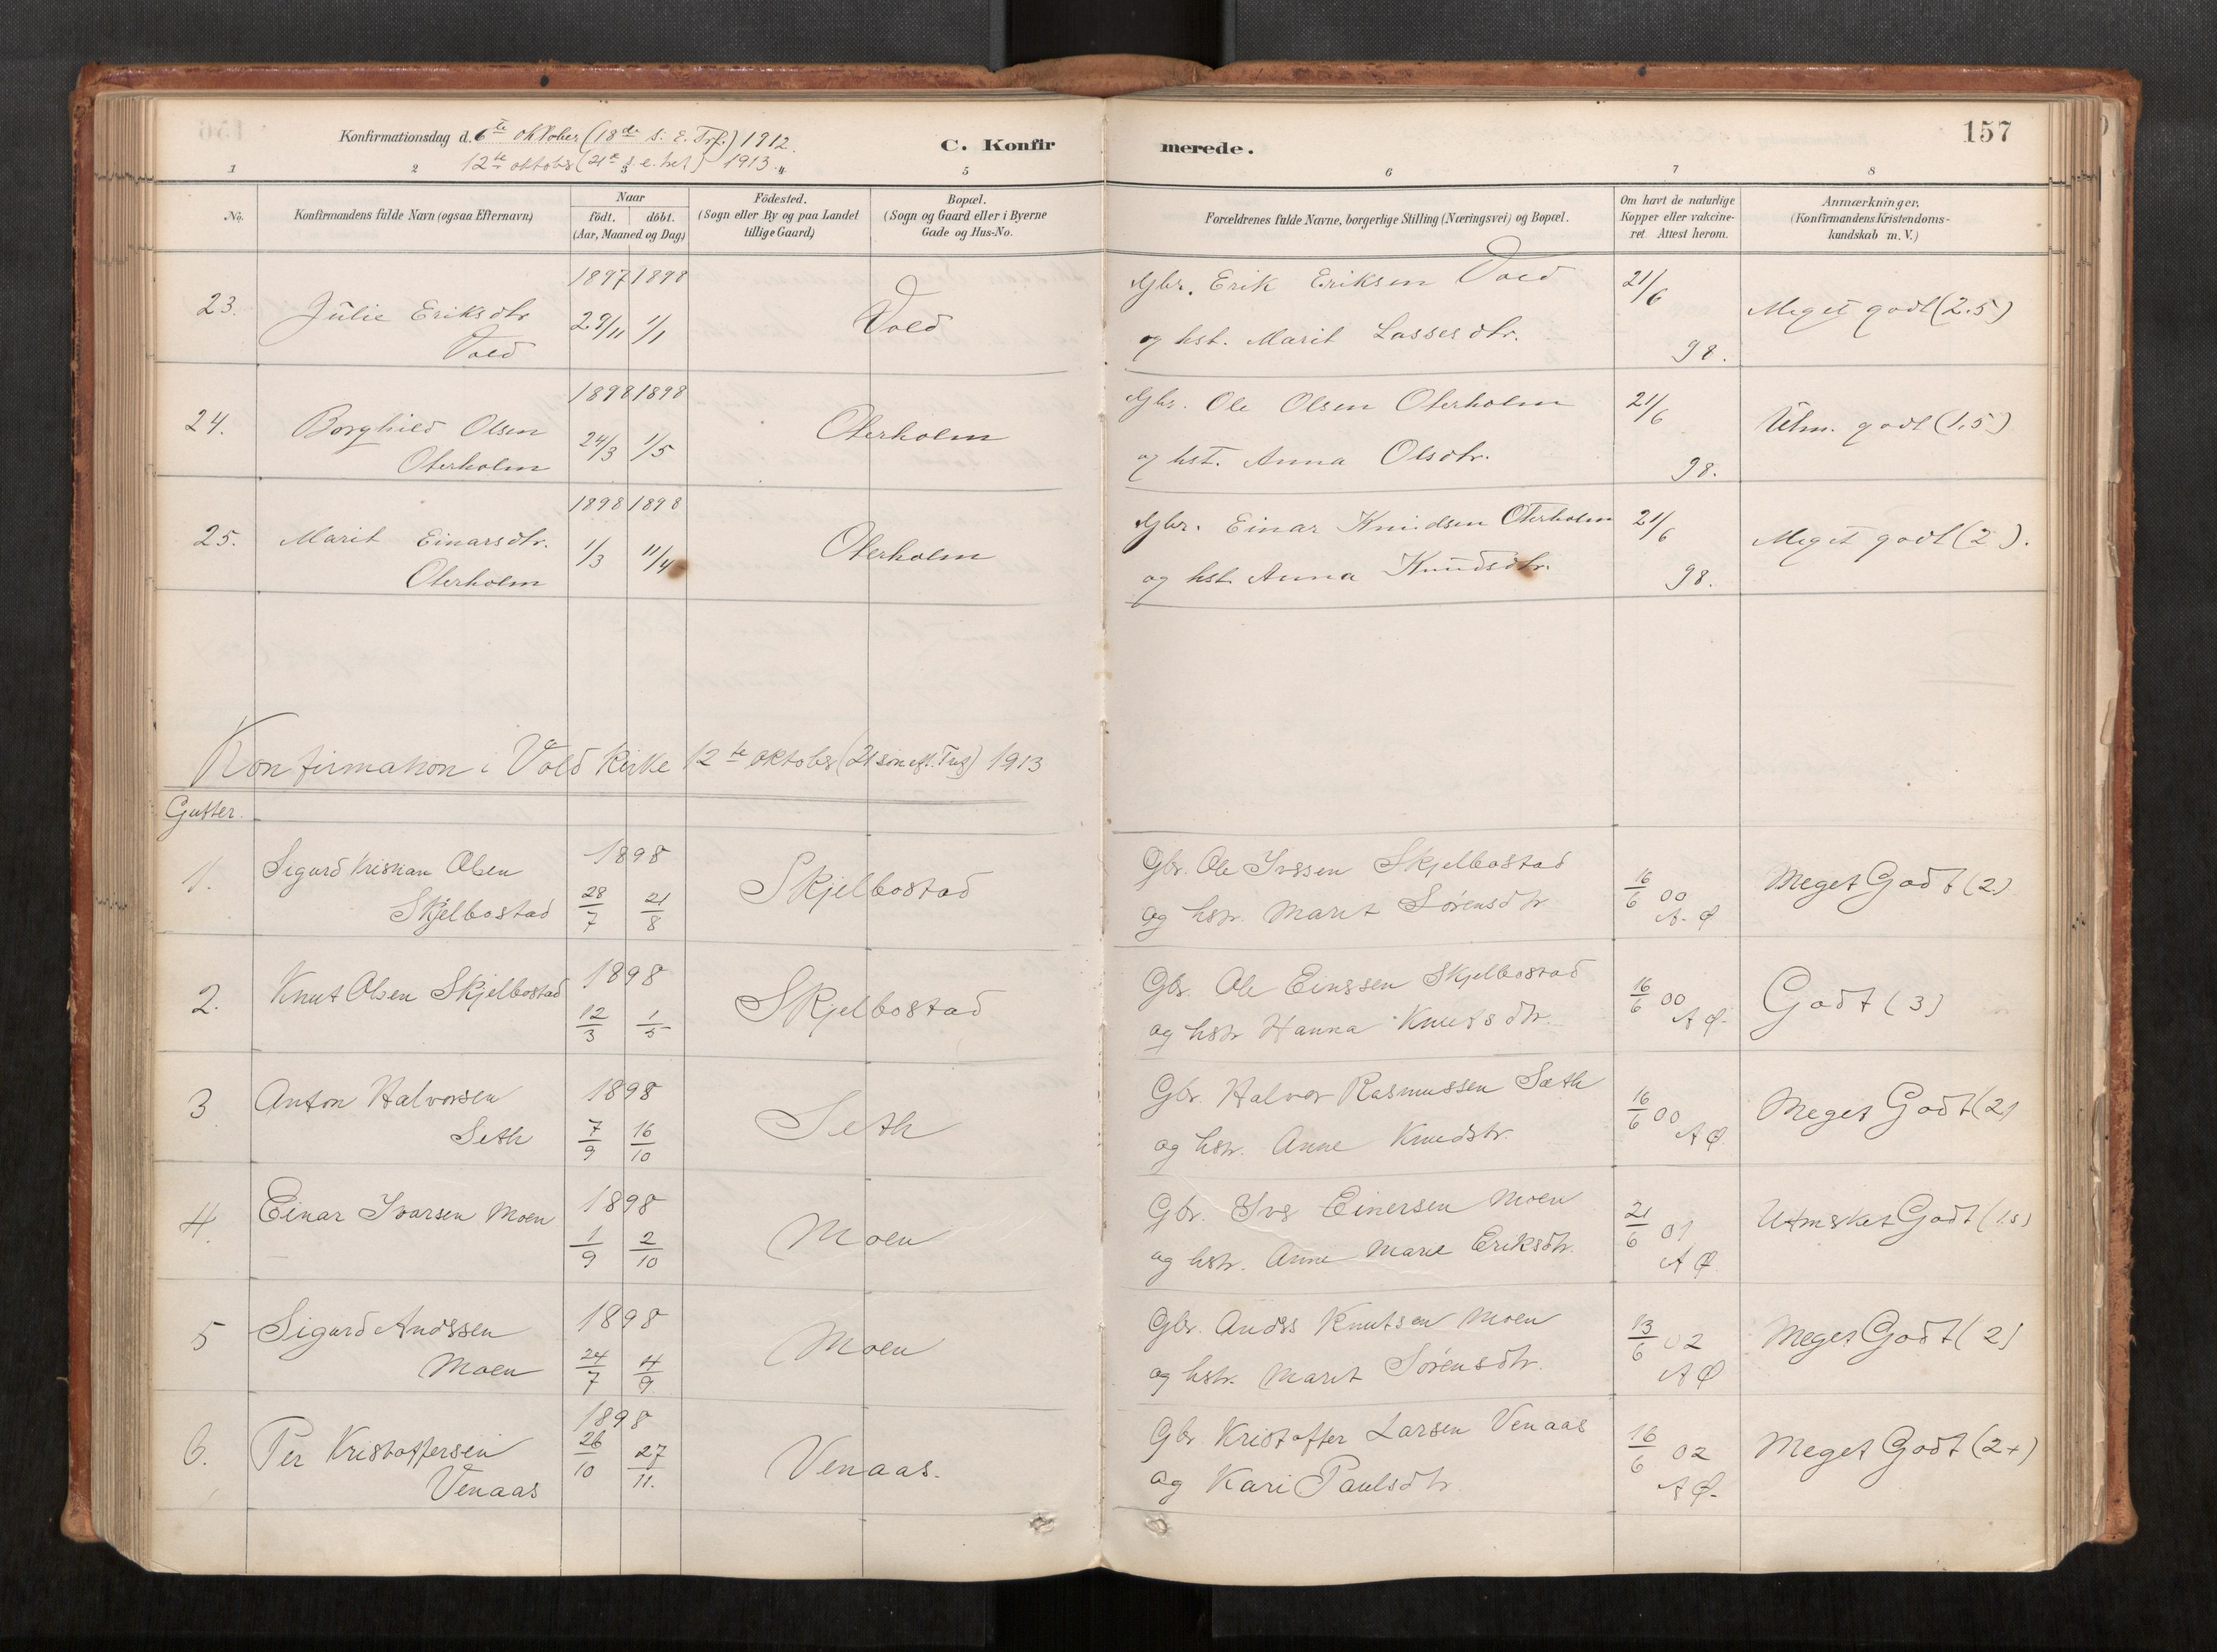 157
Konfirmationsdag d. 6te oktober (18de s. e. Tref.) 1912.
12te oktobr (21de s. e. tref) 1913.
C. Konfirmerede.
1 2 3 4 5 6 7 8
No. Konfirmandens fulde Navn (ogsaa Efternavn) Naar födt. döbt. (Aar, Maaned og Dag) Födested. (Sogn eller By og paa Landet tillige Gaard) Bopæl. (Sogn og Gaard eller i Byerne Gade og Hus-No. Forældrenes fulde Navne, borgerlige Stilling (Næringsvei) og Bopæl. Om havt de naturlige Kopper eller vakcineret. Attest herom. Anmærkninger. (Konfirmandens Kristendomskundskab m. V.)
1897 1898 Gbr. Erik Eriksen Vold 21/6
23. Julie Eriksdtr 29/11 1/1 Vold Meget godt (2.5)
Vold og hst. Marit Lassesdtr. 98.
1898 1898 Gbr. Ole Olsen Oterholm 21/6
24. Borghild Olsen 24/3 1/5 Oterholm Utm. godt (1.5)
Oterholm og hst. Anna Olsdtr. 98.
1898 1898 Gbr. Einar Knudsen Oterholm 21/6
25. Marit Einarsdtr. 1/3 11/4 Oterholm Meget godt (2).
Oterholm og hst. Anna Knudsdtr. 98.
Konfirmation i Vold Kirke 12te oktober (21 søn eft. Tref) 1913
Gutter.
1898 Gbr. Ole Iverssen Skjelbostad
1. Sigurd Kristian Olsen Skjelbostad 16/6 00 Meget Godt (2)
Skjelbostad 28/7 21/8 og hstr. Marit Sørensdtr A. Ø
1898 Gbr. Ole Einerssen Skjelbostad
2. Knut Olsen Skjelbostad Skjelbostad 16/6 00 Godt (3)
12/3 1/5 og hstr Hanna Knutsdtr. A Ø.
1898 Gbr. Halvor Rasmussen Sæth
3 Anton Halvorsen Seth 16/6 00 Meget Godt (2)
Seth 7/9 16/10 og hstr. Anne Knudsdtr. A Ø.
1898 Gbr. Iver Einersen Moen
4. Einar Ivarsen Moen Moen 21/6 01 Utmerket Godt (1.5)
1/9 2/10 og hstr. Anne Marie Eriksdtr. A Ø
1898 Gbr. Anders Knutsen Moen
5 Sigurd Anderssen Moen 13/6 02 Meget Godt (2)
Moen 24/7 4/9 og hstr. Marit Sørensdtr. A Ø
1898 Gbr. Kristoffer Larsen Venaas
6. Per Kristoffersen 26/10 27/11. Venaas. 16/6 02 Meget Godt (2+)
Venaas og Kari Paulsdtr A Ø.